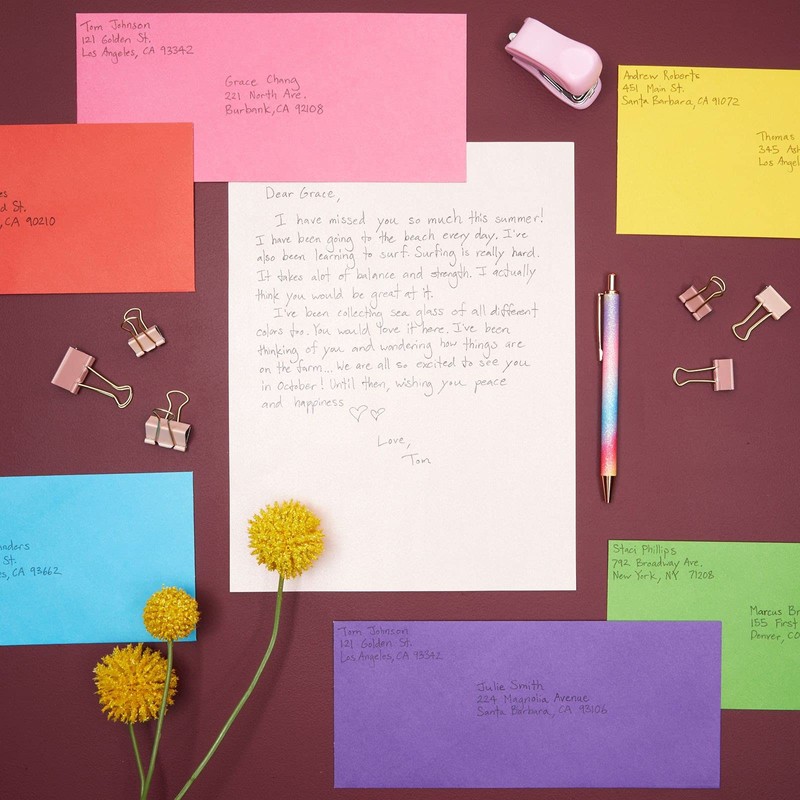 Tom Johnson
121 Golden St.
Los Angeles, CA 93342
Grace Chang
221 North Ave.
Burbank, CA 92108
Andrew Roberts
451 Main St.
Santa Barbara, CA 91072
Thomas
345 Ash
Los Angel
es
d St.
, CA 90210
Dear Grace,
I have missed you so much this summer!
I have been going to the beach every day. I've
also been learning to surf. Surfing is really hard.
It takes alot of balance and strength. I actually
think you would be great at it.
I've been collecting sea glass of all different
colors too. You would love it here. I've been
thinking of you and wondering how things are
on the farm... We are all so excited to see you
in October! Until then, wishing you peace
and happiness ♡♡
Love,
Tom
anders
St.
es, CA 93662
Staci Phillips
792 Broadway Ave.
New York, NY 71208
Marcus Br
155 First
Denver, CO
Tom Johnson
121 Golden St.
Los Angeles, CA 93342
Julie Smith
224 Magnolia Avenue
Santa Barbara, CA 93106